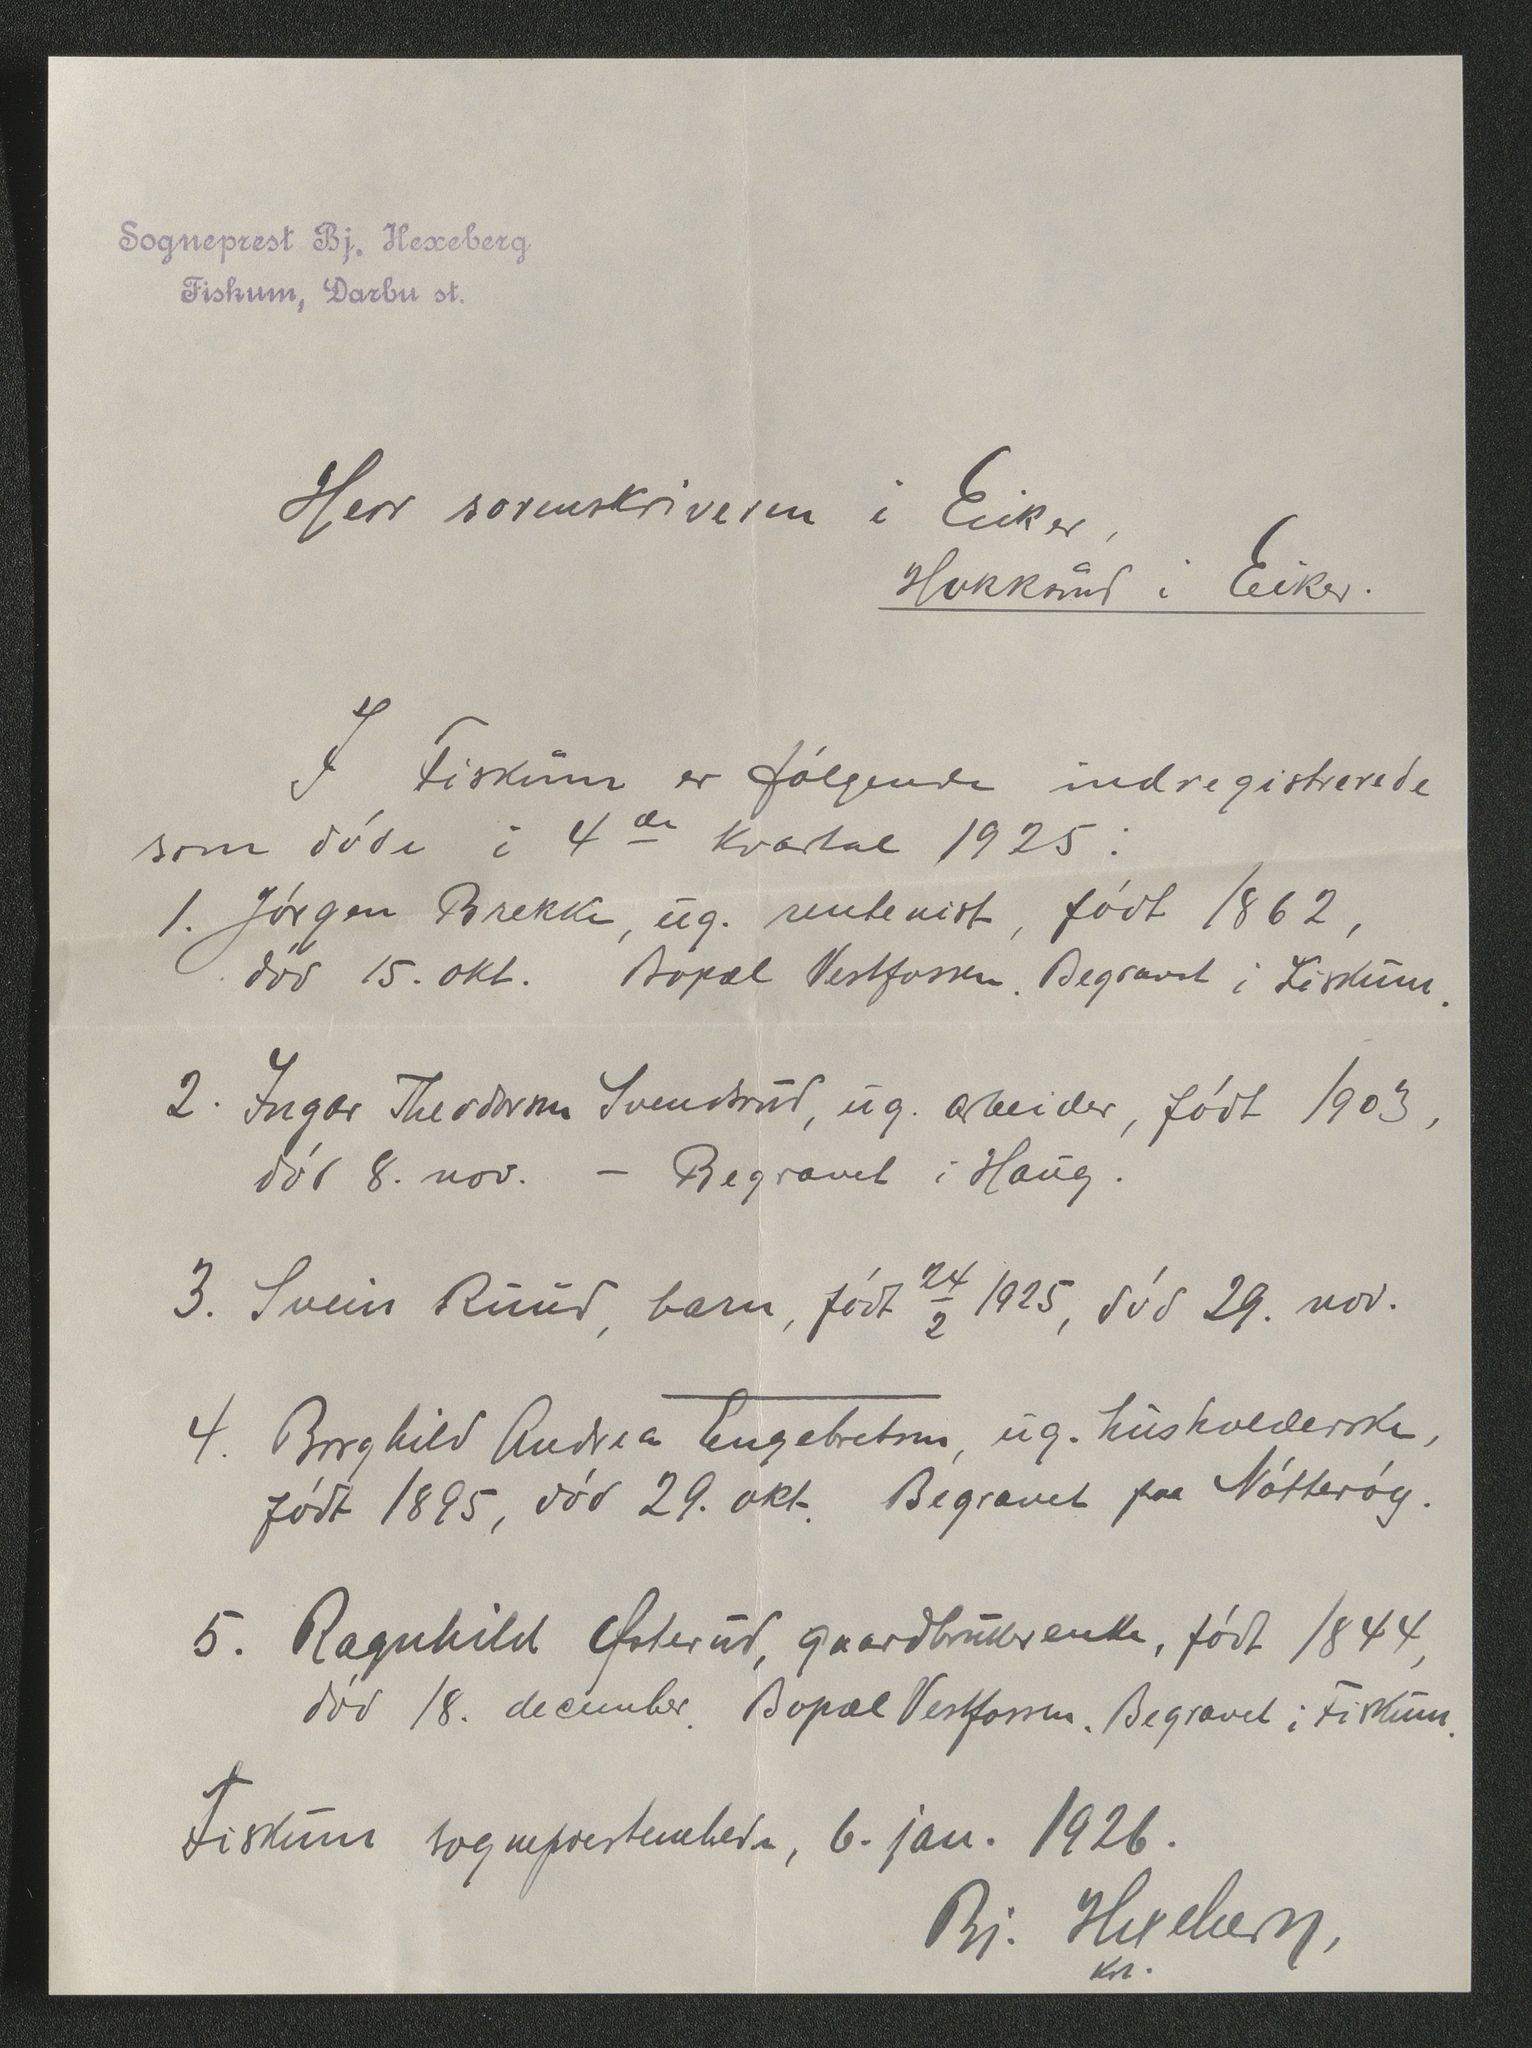 Sogneprest Bj. Hexeberg
Fiskum, Darbu st.
Herr sorenskriveren i Eiker,
Hokksund i Eiker.
I Fiskum er følgende indregistrerede
som døde i 4de kvartal 1925:
1. Jørgen Brekke, ug. rentenist, født 1862,
død 15. okt. Bopæl Vestfossen. Begravet i Fiskum.
2. Ingar Theodorsen Svendsrud, ug. arbeider, født 1903,
død 8. nov. - Begravet i Haug.
3. Svein Ruud, barn, født 24/2 1925, død 29. nov.
4. Borghild Andrea Engebretsen, ug. husholderske,
født 1895, død 29. okt. Begravet paa Nøtterøy.
5. Ragnhild Østerud, gaardbrukerenke, født 1844,
død 18. december. Bopæl Vestfossen. Begravet i Fiskum.
Fiskum sogneprestembede, 6. jan. 1926.
Bj. Hexeberg,